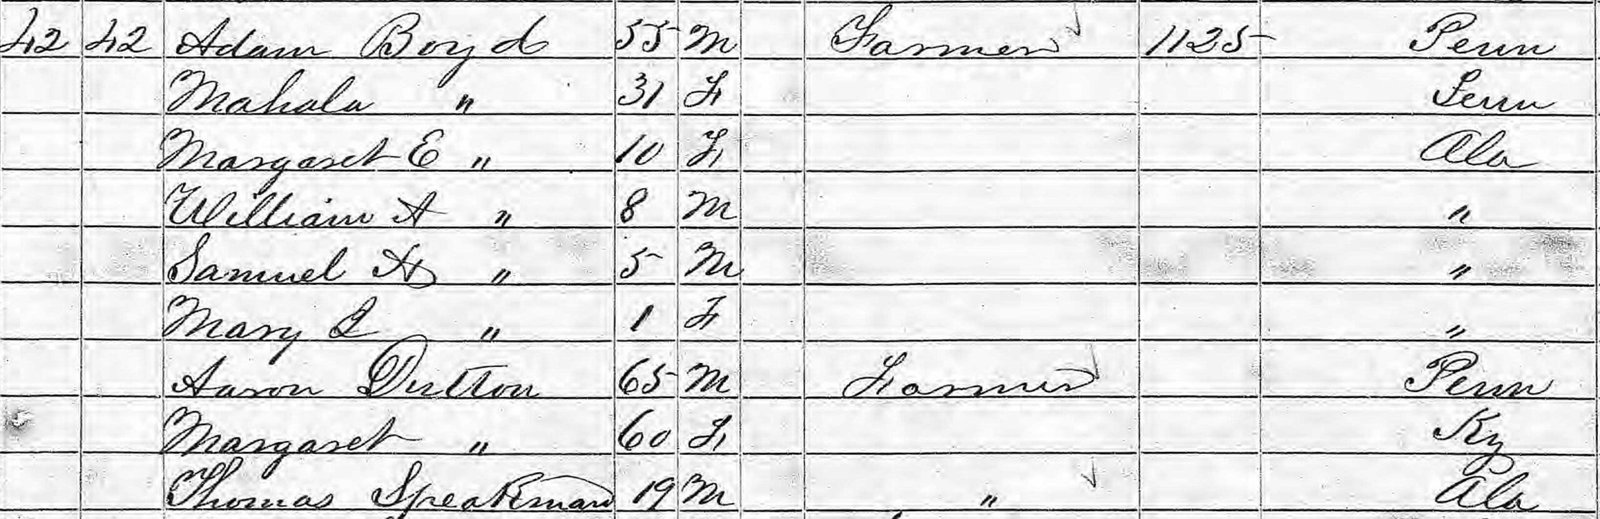 42 42 Adam Boyd 55 M Farmer 1125 Penn
Mahala " 31 F Tenn
Margaret E " 10 F Ala
William A " 8 M "
Samuel H " 5 M "
Mary I " 1 F "
Aaron Dutton 65 M Farmer Penn
Margaret " 60 F Ky
Thomas Speakman 19 M " Ala